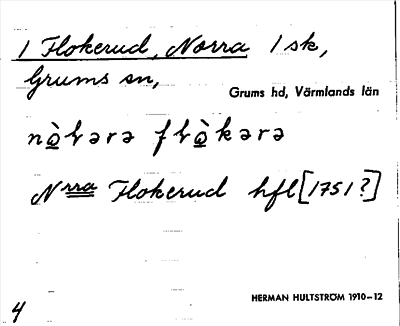 1 Flokerud, Norra 1 sk,
Grums sn,
Grums hd, Värmlands län
nò̲ɽərə flò̲kərə
Nrra Flokerud hfl [1751?]
HERMAN HULTSTRÖM 1910–12
4